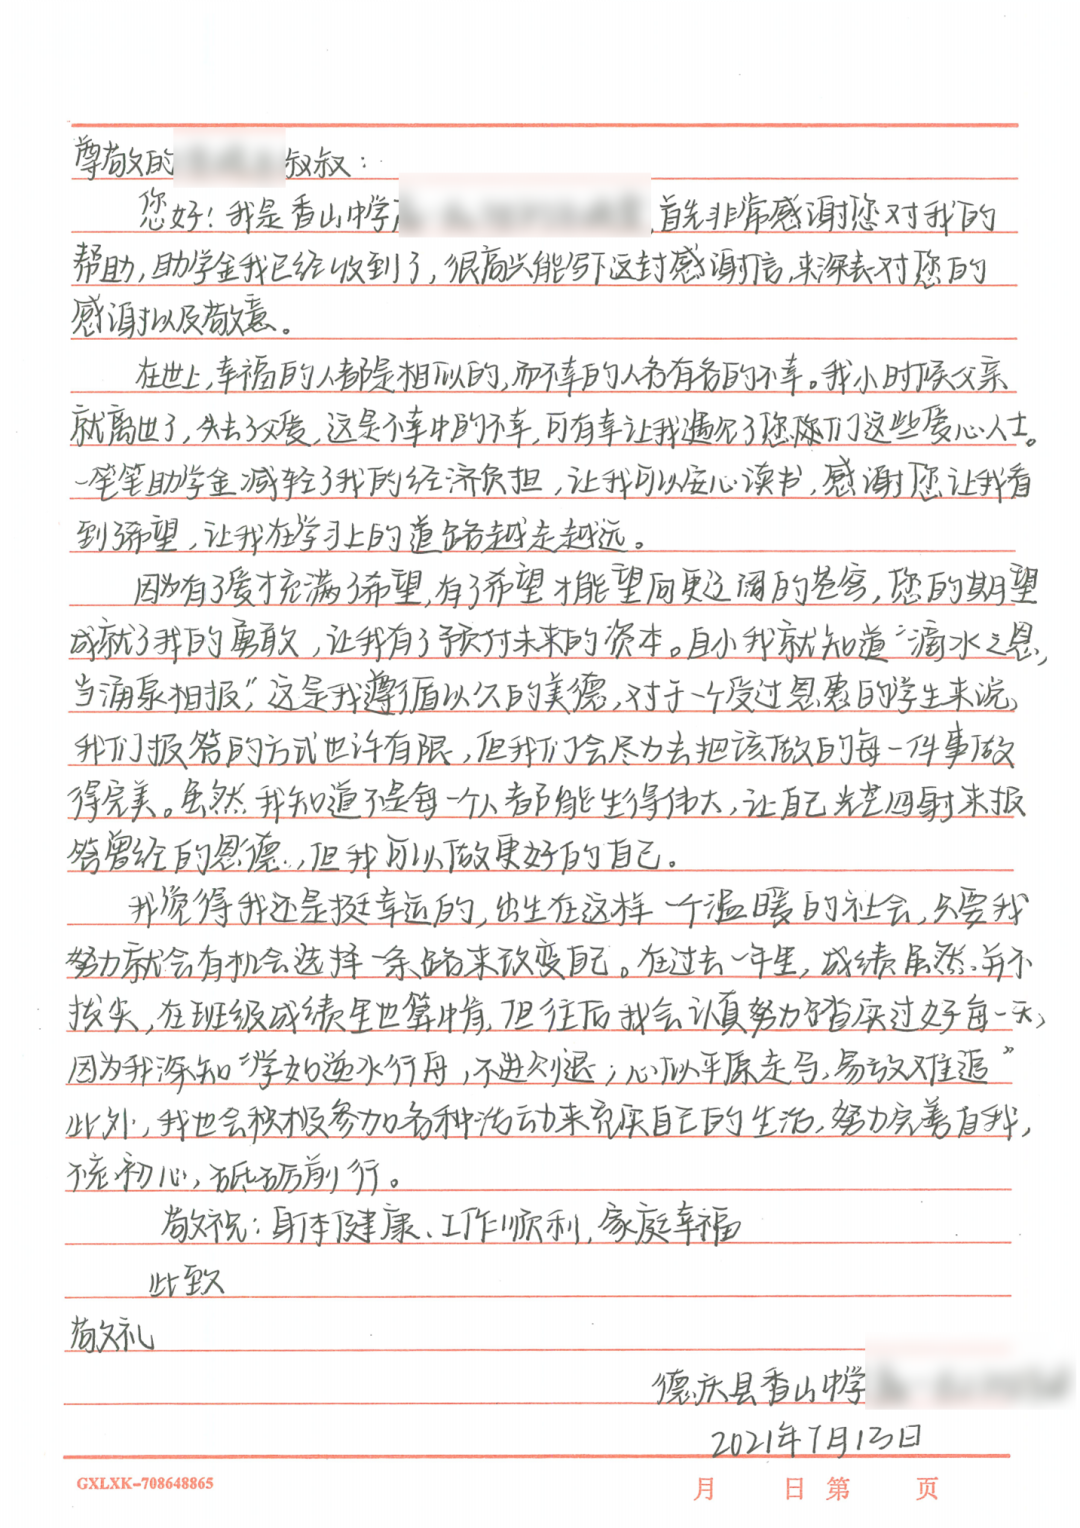 尊敬的叔叔：
您好！我是香山中学首先非常感谢您对我的
帮助，助学金我已经收到了，很高兴能写下这封感谢信，来深表对您的
感谢以及敬意。
在世上，幸福的人都是相似的，而不幸的人各有各的不幸。我小时候父亲
就离世了，失去了父爱，这是不幸中的不幸，可有幸让我遇见了您你们这些爱心人士。
一笔笔助学金减轻了我的经济负担，让我可以安心读书，感谢您让我看
到了希望，让我在学习上的道路越走越远。
因为有了爱才充满了希望，有了希望才能望向更辽阔的苍穹，您的期望
成就了我的勇敢，让我有了预付未来的资本。自小我就知道“滴水之恩，
当涌泉相报”，这是我遵循以久的美德，对于一个受过恩惠的学生来说，
我们报答的方式也许有限，但我们会尽力去把该做的每一件事做
得完美。虽然我知道不是每一个人都能生得伟大，让自己光芒四射来报
答曾经的恩德，但我可以做更好的自己。
我觉得我还是挺幸运的，出生在这样一个温暖的社会，只要我
努力就会有机会选择一条路来改变自己。在过去一年里，成绩虽然并不
拔尖，在班级成绩里也算中肯，但往后我会认真努力踏实过好每一天，
因为我深知“学如逆水行舟，不进则退；心似平原走马，易放难追”
此外，我也会积极参加各种活动来充实自己的生活，努力完善自我，
不忘初心，砥砺前行。
敬祝：身体健康、工作顺利，家庭幸福
此致
敬礼
德庆县香山中学
2021年7月13日
GXLXK-708648865 月 日 第 页